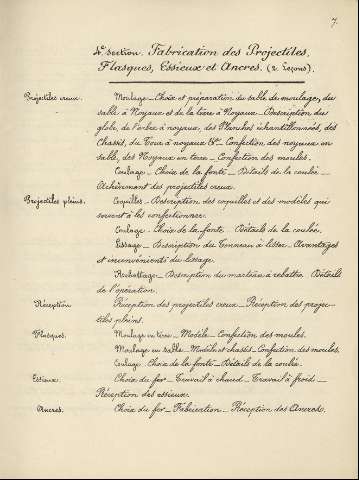 7.
4e Section. Fabrication des Projectiles,
Flasques, Essieux et Ancres. (2 Leçons).
Projectiles creux. Moulage _ Choix et préparation du sable de moulage, du
sable à Noyaux et de la terre à Noyaux _ Description du
globe, de l'arbre à noyaux, des Planches échantillonnées, des
Chassis, du Tour à noyaux &a _ Confection des noyaux en
sable, des Noyaux en terre _ Confection des moules.
Coulage _ Choix de la fonte _ Détails de la coulée _
Achèvement des projectiles creux.
Projectiles pleins. Coquilles _ Description des coquilles et des modèles qui
servent à les confectionner.
Coulage _ Choix de la fonte _ Détails de la coulée.
Lissage _ Description du Tonneau à lisser _ Avantages
et inconvénients du lissage.
Rebattage _ Description du marteau à rebattre. Détails
de l'opération.
Réception Réception des projectiles creux _ Réception des projec-
tiles pleins.
Flasques. Moulage en terre _ Modèle _ Confection des moules.
Moulage en sable _ Modèle et chassis _ Confection des moules.
Coulage Choix de la fonte _ Détails de la coulée.
Essieux. Choix du fer _ Travail à chaud _ Travail à froid _
Réception des essieux.
Ancres. Choix du fer _ Fabrication _ Réception des Ancres.